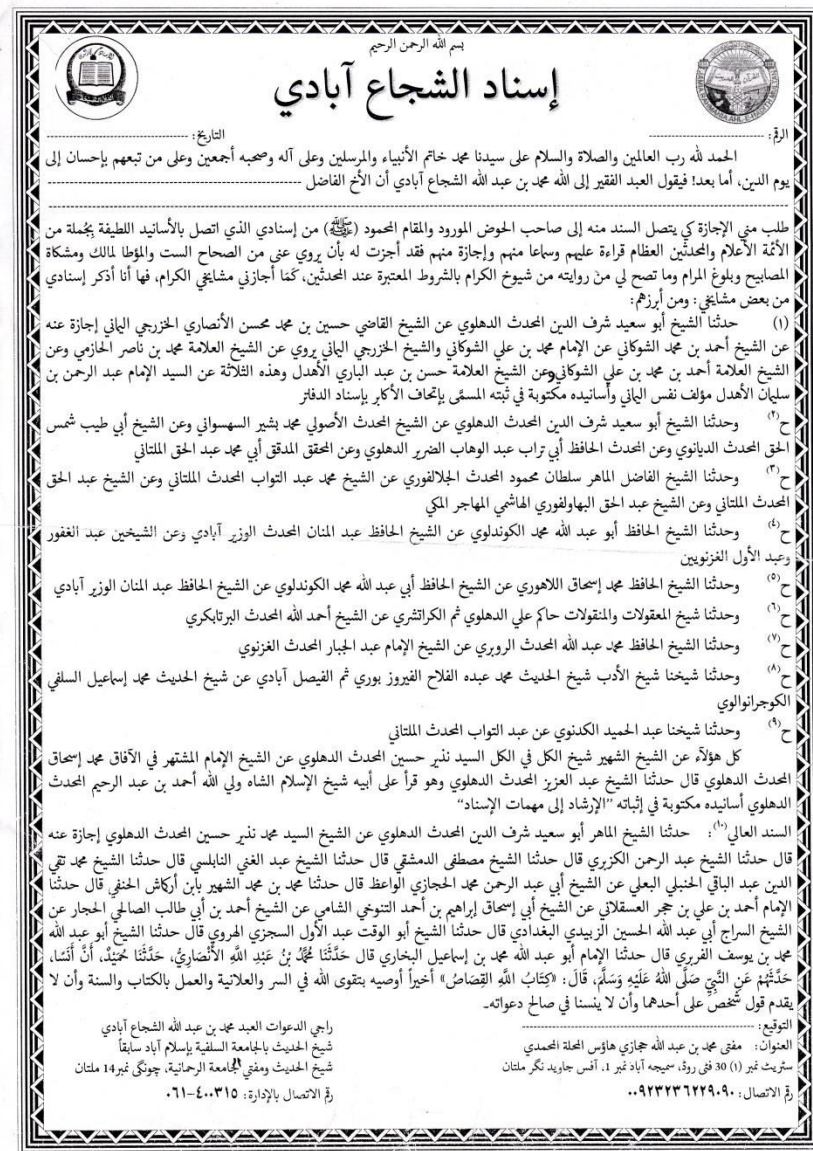 بسم الله الرحمن الرحيم
إسناد الشجاع آبادي
الرقم: ---------- التاريخ: ----------
الحمد لله رب العالمين والصلاة والسلام على سيدنا محمد خاتم الأنبياء والمرسلين وعلى آله وصحبه أجمعين وعلى من تبعهم بإحسان إلى
يوم الدين، أما بعد! فيقول العبد الفقير إلى الله محمد بن عبد الله الشجاع آبادي أن الأخ الفاضل ----------
طلب مني الإجازة كي يتصل السند منه إلى صاحب الحوض المورود والمقام المحمود (ﷺ) من إسنادي الذي اتصل بالأسانيد اللطيفة بجُملة من
الأئمة الأعلام والمحدثين العظام قراءة عليهم وسماعا منهم وإجازة منهم فقد أجزت له بأن يروي عنى من الصحاح الست والمؤطا لمالك ومشكاة
المصابيح وبلوغ المرام وما تصح لي من روايته من شيوخ الكرام بالشروط المعتبرة عند المحدثين، كَمَا أجازني مشايخي الكرام، فها أنا أذكر إسنادي
من بعض مشايخي: ومن أبرزهم:
(١) حدثنا الشيخ أبو سعيد شرف الدين المحدث الدهلوي عن الشيخ القاضي حسين بن محمد محسن الأنصاري الخزرجي اليماني إجازة عنه
عن الشيخ أحمد بن محمد الشوكاني عن الإمام محمد بن علي الشوكاني والشيخ الخزرجي اليماني يروي عن الشيخ العلامة محمد بن ناصر الحازمي وعن
الشيخ العلامة أحمد بن محمد بن علي الشوكاني وعن الشيخ العلامة حسن بن عبد الباري الأهدل وهذه الثلاثة عن السيد الإمام عبد الرحمن بن
سليمان الأهدل مؤلف نفس اليماني وأسانيده مكتوبة في ثبته المسمّى بإتحاف الأكابر بإسناد الدفاتر
ح(٢) وحدثنا الشيخ أبو سعيد شرف الدين المحدث الدهلوي عن الشيخ المحدث الأصولي محمد بشير السهسواني وعن الشيخ أبي طيب شمس
الحق المحدث الديانوي وعن المحدث الحافظ أبي تراب عبد الوهاب الضرير الدهلوي وعن المحقق المدقق أبي محمد عبد الحق الملتاني
ح(٣) وحدثنا الشيخ الفاضل الماهر سلطان محمود المحدث الجلالفوري عن الشيخ محمد عبد التواب المحدث الملتاني وعن الشيخ عبد الحق
المحدث الملتاني وعن الشيخ عبد الحق البهاولفوري الهاشمي المهاجر المكي
ح(٤) وحدثنا الشيخ الحافظ أبو عبد الله محمد الكوندلوي عن الشيخ الحافظ عبد المنان المحدث الوزير آبادي وعن الشيخين عبد الغفور
وعبد الأول الغزنويين
ح(٥) وحدثنا الشيخ الحافظ محمد إسحاق اللاهوري عن الشيخ الحافظ أبي عبد الله محمد الكوندلوي عن الشيخ الحافظ عبد المنان الوزير آبادي
ح(٦) وحدثنا شيخ المعقولات والمنقولات حاكم علي الدهلوي ثم الكراتشري عن الشيخ أحمد الله المحدث البرتابكري
ح(٧) وحدثنا الشيخ الحافظ محمد عبد الله المحدث الروبري عن الشيخ الإمام عبد الجبار المحدث الغزنوي
ح(٨) وحدثنا شيخنا شيخ الأدب شيخ الحديث محمد عبده الفلاح الفيروز بوري ثم الفيصل آبادي عن شيخ الحديث محمد إسماعيل السلفي
الكوجرانوالوي
ح(٩) وحدثنا شيخنا عبد الحميد الكدنوي عن عبد التواب المحدث الملتاني
كل هؤلآء عن الشيخ الشهير شيخ الكل في الكل السيد نذير حسين المحدث الدهلوي عن الشيخ الإمام المشتهر في الآفاق محمد إسحاق
المحدث الدهلوي قال حدثنا الشيخ عبد العزيز المحدث الدهلوي وهو قرأ على أبيه شيخ الإسلام الشاه ولي الله أحمد بن عبد الرحيم المحدث
الدهلوي أسانيده مكتوبة في إثباته "الإرشاد إلى مهمات الإسناد"
السند العالي(١٠): حدثنا الشيخ الماهر أبو سعيد شرف الدين المحدث الدهلوي عن الشيخ السيد محمد نذير حسين المحدث الدهلوي إجازة عنه
قال حدثنا الشيخ عبد الرحمن الكزبري قال حدثنا الشيخ مصطفى الدمشقي قال حدثنا الشيخ عبد الغني النابلسي قال حدثنا الشيخ محمد تقي
الدين عبد الباقي الحنبلي البعلي عن الشيخ أبي عبد الرحمن محمد الحجازي الواعظ قال حدثنا محمد بن محمد الشهير بابن أركماش الحنفي قال حدثنا
الإمام أحمد بن علي بن حجر العسقلاني عن الشيخ أبي إسحاق إبراهيم بن أحمد التنوخي الشامي عن الشيخ أحمد بن أبي طالب الصالحي الحجار عن
الشيخ السراج أبي عبد الله الحسين الزبيدي البغدادي قال حدثنا الشيخ أبو الوقت عبد الأول السجزي الهروي قال حدثنا الشيخ أبو عبد الله
محمد بن يوسف الفربري قال حدثنا الإمام أبو عبد الله محمد بن إسماعيل البخاري قال حَدَّثَنَا مُحَمَّدُ بْنُ عَبْدِ اللَّهِ الأَنْصَارِيُّ، حَدَّثَنَا حُمَيْدٌ، أَنَّ أَنَسًا،
حَدَّثَهُمْ عَنِ النَّبِيِّ صَلَّى اللهُ عَلَيْهِ وَسَلَّمَ، قَالَ: «كِتَابُ اللَّهِ القِصَاصُ» أخيراً أوصيه بتقوى الله في السر والعلانية والعمل بالكتاب والسنة وأن لا
يقدم قول شخص على أحدهما وأن لا ينسنا في صالح دعواته۔
التوقيع: ---------- راجي الدعوات العبد محمد بن عبد الله الشجاع آبادي
العنوان: مفتی محمد بن عبد الله حجازي هاؤس المحلة المحمدي شيخ الحديث بالجامعة السلفية بإسلام آباد سابقاً
سٹریٹ نمبر (۱) 30 فٹی روڈ، سمیجہ آباد نمبر 1، آفس جاوید نگر ملتان شيخ الحديث ومفتي الجامعة الرحمانية، چونگی نمبر14 ملتان
رقم الاتصال: ٠٠٩٢٣٢٣٦٢٢٩٠٩٠ رقم الاتصال بالإدارة: ٤٠٠٣١٥-٠٦١